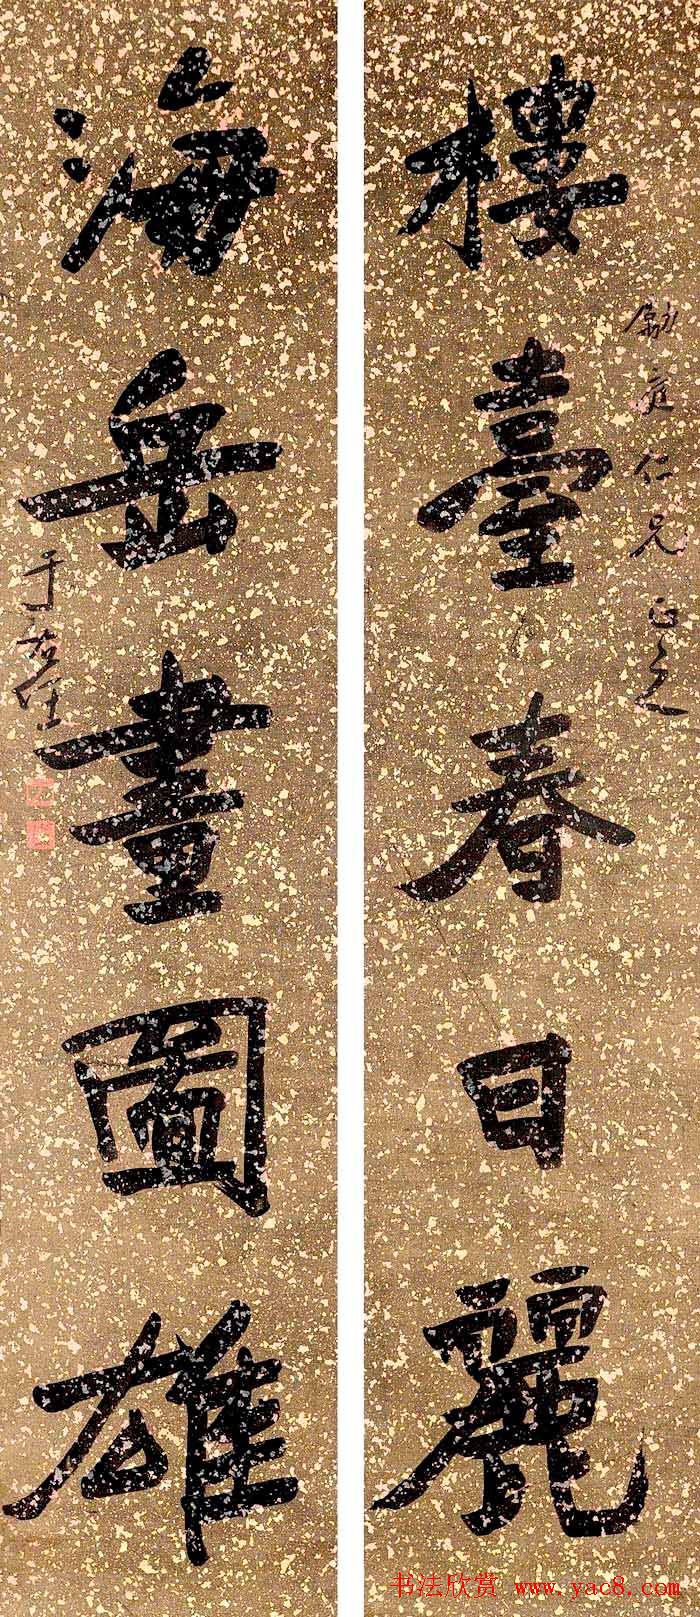 樓臺春日麗
勵庭仁兄 正之
海岳畫圖雄
于右任
书法欣赏 www.yac8.com